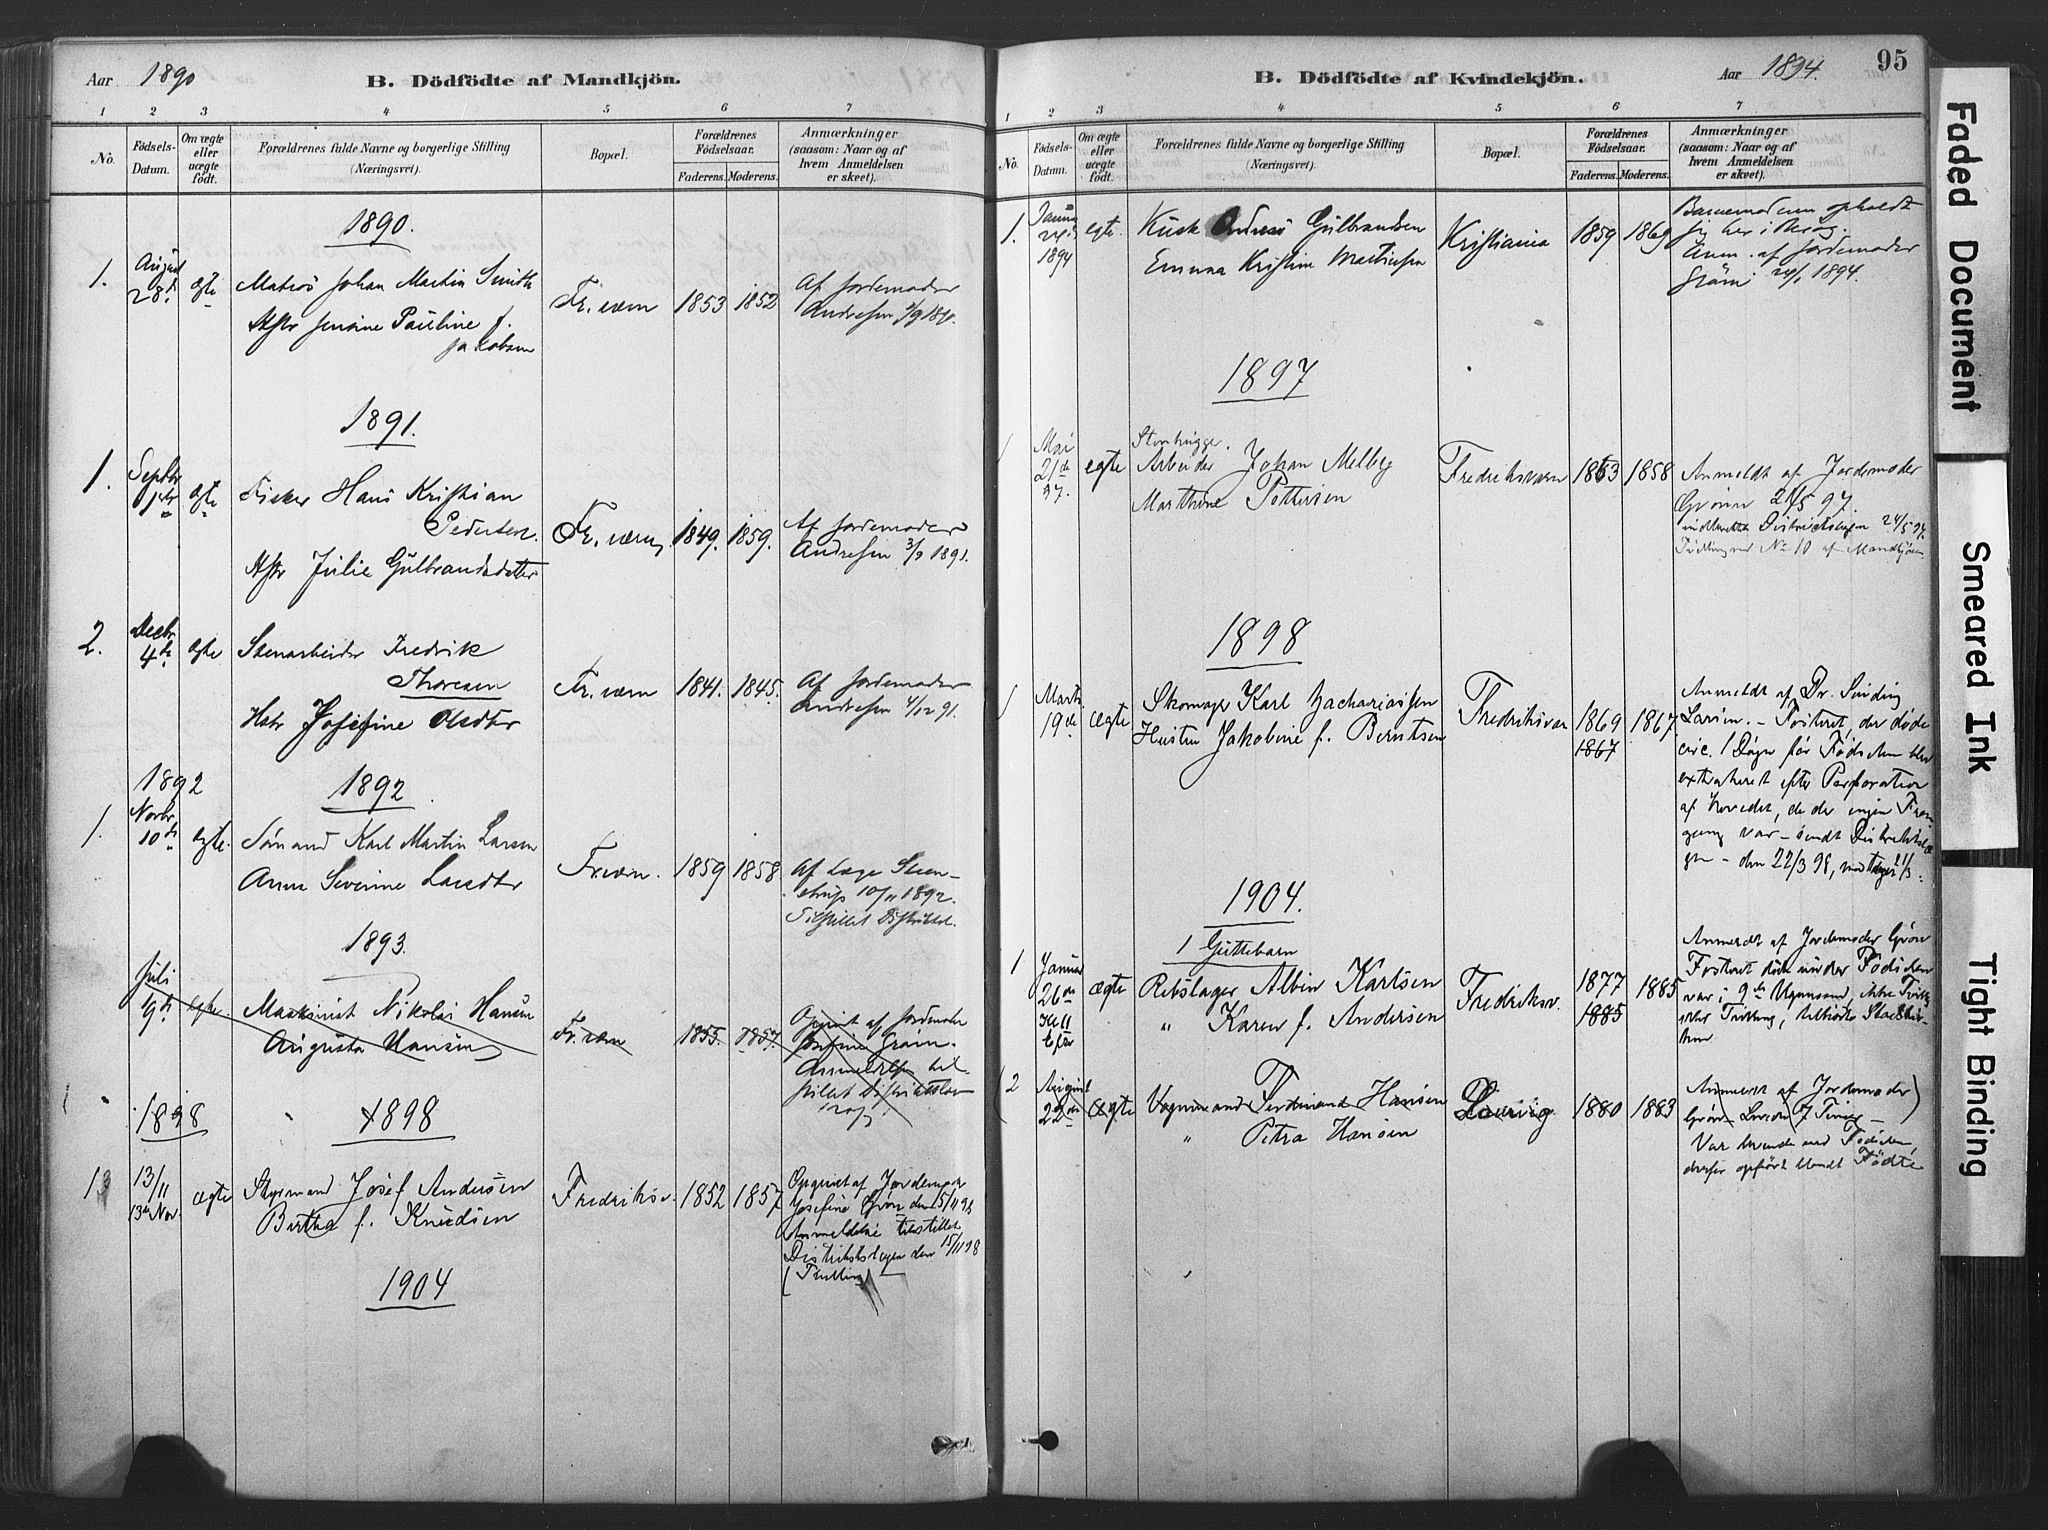 Aar 1890
B. Dödfödte af Mandkjön.
1 2 3 4 5 6 7
No.
Födsels-Datum.
Om ægte eller uægte födt.
Forældrenes fulde Navne og borgerlige Stilling (Næringsvei).
Bopæl.
Forældrenes Födselsaar.
Faderens. Moderens.
Anmærkninger (saasom: Naar og af hvem Anmeldelsen er skeet).
1890.
1. August 28de ægte
Matros Johan Martin Smith
Hstr Jensine Pauline f.
Jakobsen
Fr.værn 1853 1852
Af Jordemoder
Andresen
1891.
1. Septbr 1ste ægte
Fisker Hans Kristian
Pedersen.
Hstr Julie Gulbrandsdatter
Fr.værn 1849. 1859.
Af Jordemoder
Andresen 3/9 1891.
2. Decbr 4de ægte
Stenarbeider Fredrik
Thoresen
Hstr Josefine Olsdtr
Fr.værn 1841. 1845.
Af Jordemoder
Andresen 4/12 91.
1892
1892
1. Novbr 10de ægte.
Sømand Karl Martin Larsen
Anna Severine Larsdtr
Fr.værn. 1859 1858
Af Læge Steen-
strup 10/11 1892.
Tilstillet Distriktsl.
1893.
Juli 9de ægte.
Maskinist Nikolai Hansen
Augusta Hansen
Fr.værn 1855. 1857.
Opgivet af Jordemoder
Josefine Grøn.
Anmeldelsen til-
stillet Distriktslæg
1898 1898
13 13/11 13de Nov. ægte
Styrmand Josef Andersen
Birtha f. Knudsen
Fredriksv. 1852 1857
Opgivet af Jordemoder
Josefine Grøn den 15/11 98
Anmeldelse tilstillet
Distriktslægen den 15/11 98
(Tvilling)
1904
B. Dödfödte af Kvindekjön.
Aar 1894.
95
1 2 3 4 5 6 7
No.
Födsels-Datum.
Om ægte eller uægte födt.
Forældrenes fulde Navne og borgerlige Stilling (Næringsvei).
Bopæl.
Forældrenes Födselsaar.
Faderens. Moderens.
Anmærkninger (saasom: Naar og af hvem Anmeldelsen er skeet).
1. Januar 24de 1894 egte.
Kusk Andreas Gulbrandsen
Emma Kristine Martinsen
Kristiania 1859 1869
Barnemoderen opholdt
sig her i Besøg.
Anm. af Jordemoder
Grøn 24/1 1894.
1897
1 Mai 21de 97. egte
Stenhugger.
Arbeider Johan Melby
Marthine Pettersen
Fredriksværn 1863 1858
Anmeldt af Jordemoder
Grønn 21/5 97.
indberettet Distriktslægen 24/5 97.
Tvilling med No 10 af Mandkjøn
1898
1 Marts 19de ægte
Skomager Karl Zachariassen
Hustru Jakobine f. Berntsen
Fredriksværn 1869 1867
1867
Anmeldt af Dr. Sinding
Larsen. – Fosteret, der døde
circ. 1 Døgn før Fødselen blev
extraheret efter Perforation
af Hovedet, da der ingen Frem-
gang var – sendt Distriktslæ
gen – den 22/3 98, modtaget 21/3.
1904.
1 Guttebarn
1 Januar 26de ægte
Rebslager Albin Karlsen
" Karen f. Andersen
Fredriksv. 1877 1885
1885
Anmeldt af Jordemoder Grøn
Fosteret døde under Fødselen
var i 9de Maaned, ikke Tvilling
eller Trilling,
(2 August 22de ægte
Vognmand Ferdinand Hansen
" Petra Hansen
Laurvig 1880 1883
Anmeldt af Jordemoder)
Grøn
Var levende ved Fødselen,
derfor opført blandt Fødte
Faded Document
Smeared Ink
Tight Binding